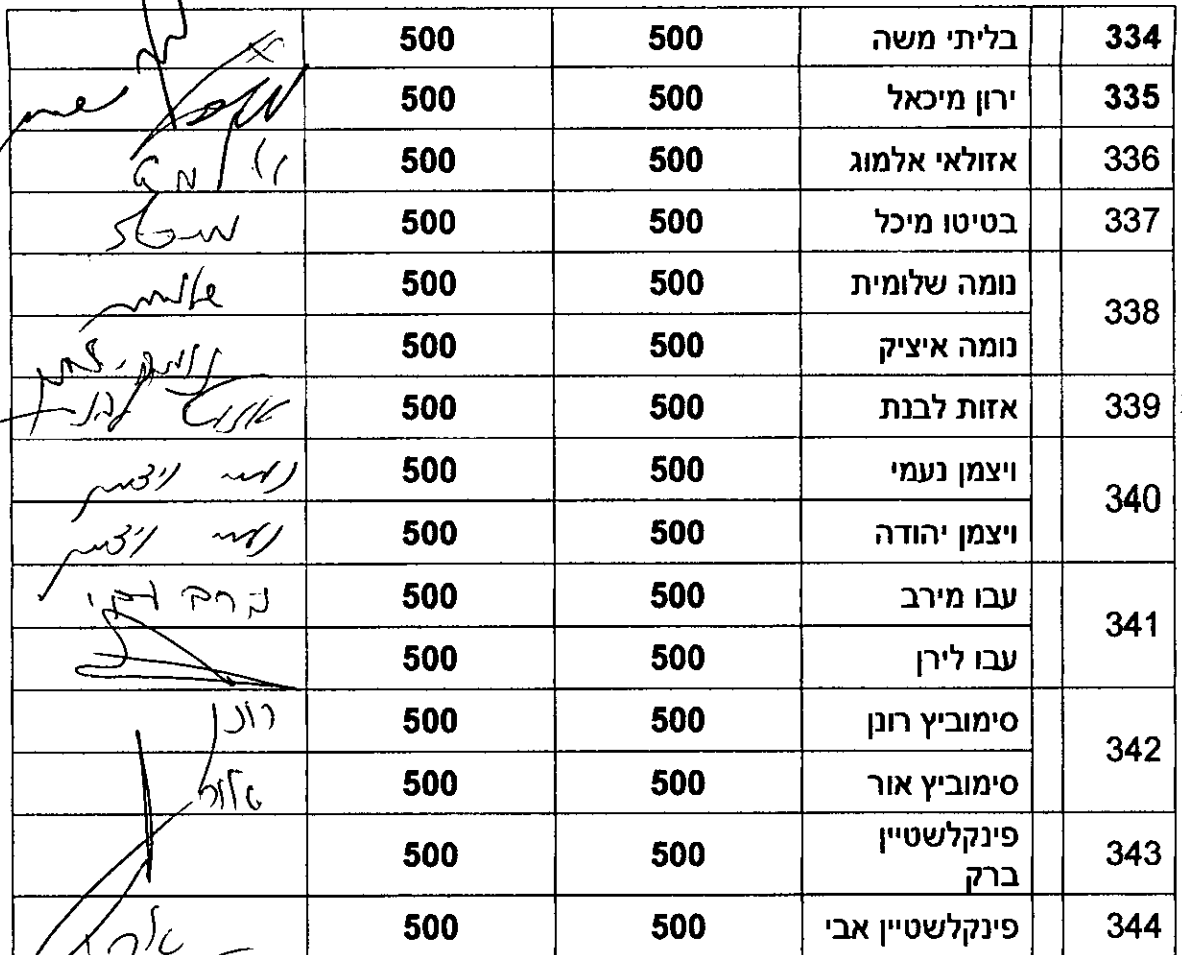 334 בליתי משה 500 500
335 ירון מיכאל 500 500
336 אזולאי אלמוג 500 500
337 בטיטו מיכל 500 500
338 נומה שלומית 500 500
נומה איציק 500 500
339 אזות לבנת 500 500
340 ויצמן נעמי 500 500 נעמי ויצמן
ויצמן יהודה 500 500 נעמי ויצמן
341 עבו מירב 500 500
עבו לירן 500 500
342 סימוביץ רונן 500 500 רונן
סימוביץ אור 500 500
343 פינקלשטיין 500 500
ברק
344 פינקלשטיין אבי 500 500